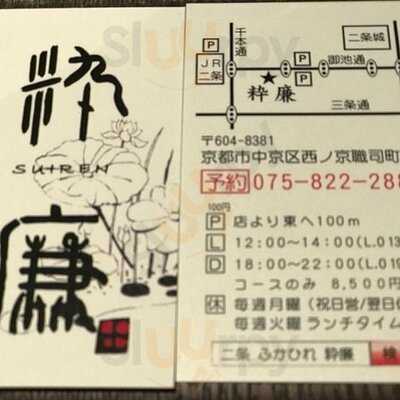 粋廉
SUIREN
千本通
P
二条城
JR
二条
P
御池通
★
粋廉
P
三条通
〒604-8381
京都市中京区西ノ京職司町
予約 075-822-288
100円
P 店より東へ100m
L 12:00~14:00(L.013
D 18:00~22:00(L.019
コースのみ 8,500円
休 毎週月曜(祝日営/翌日
毎週火曜 ランチタイム
二条 ふかひれ 粋廉 検